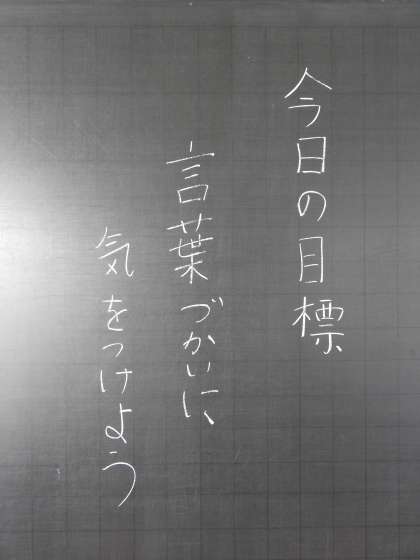 今日の目標
言葉づかいに、
気をつけよう